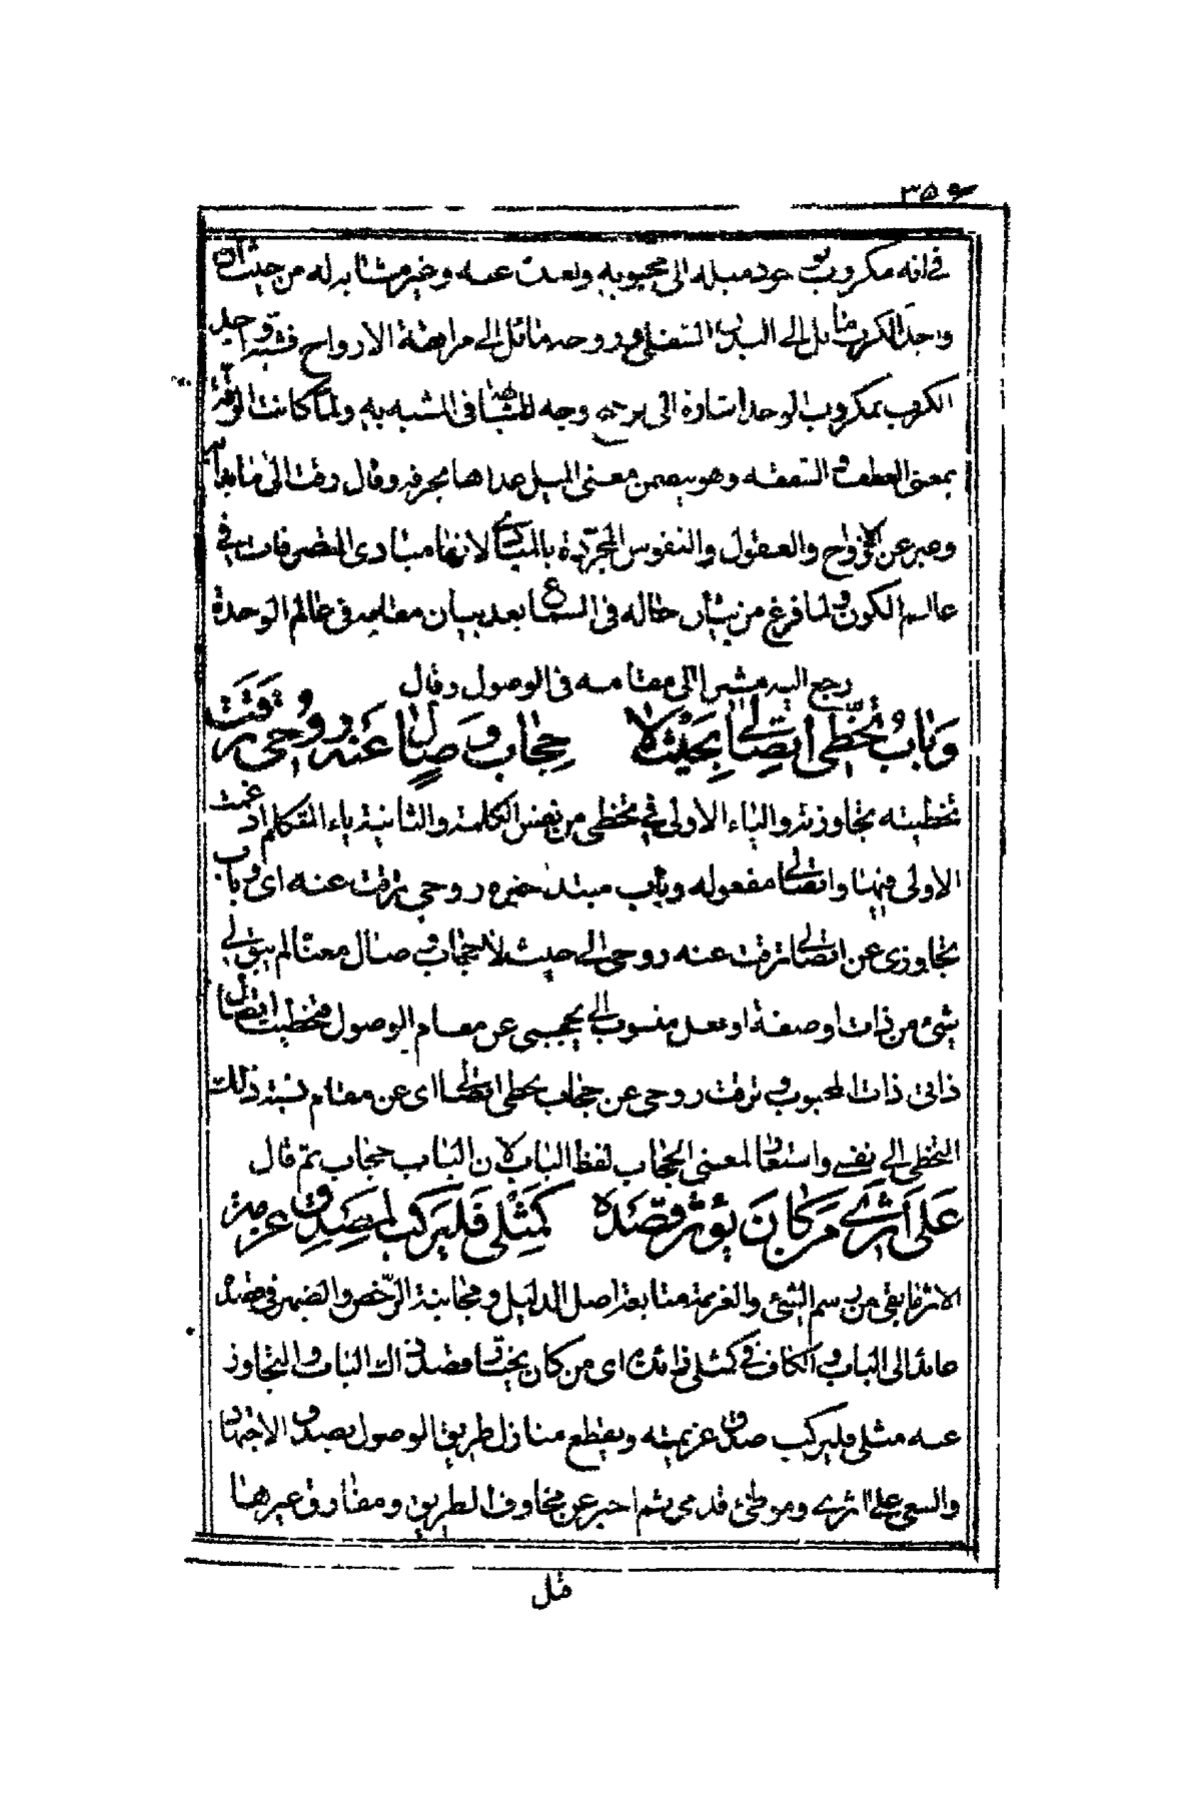 ٣٥۶
في انه مكروب وجود ميله الى محبوبه وبعدت عنه وخبر مشابه له من حيث ان
واجد الكرب مائل الى البدن السفلي وروحه مائل الى مرافقة الارواح فشبه واجد
الكرب بمكروب الوجد اشارة الى وجه للمشابهة في المشبه به ولما كانت الرقة
بمعنى العطف والشفقة وهو يتضمن معنى الميل عداها بحرفه وقال رقت الى ما
وعبر عن الارواح والعقول والنفوس المجردة بالمبادي لانها مبادى التصرفات في
عالم الكون ولما فرغ من بيان حاله في السماع بعد بيان مقامه في عالم الوحدة
رجع اليه مشيرا الى مقامه في الوصول وقال
وَبَابُ تَخَطِّي اتِّصَالِي بِحَيْثُ لَا حِجَابَ وِصَالٍ عَنْهُ رُوحِي تَرَقَّتِ
تخطيته تجاوزته والياء الاولى في تخطي من نفس الكلمة والثانية ياء المتكلم ادغمت
الاولى فيها واتصالي مفعوله وباب مبتدا خبره روحي ترقت عنه اى وباب
تجاوزى عن اتصالى ترقت عنه روحي الى حيث لا حجاب وصال معنا لم يبق لي
شئ من ذات او صفة او فعل منسوب الي يحجبنى عن مقام الوصول فتخطيت اتصال
ذاتى ذات المحبوب وترقت روحى عن حجاب تخطى اتصالي اى عن مقام نسبة ذلك
التخطى الى نفسي واستعار لمعنى الحجاب لفظ الباب لان الباب حجاب ثم قال
عَلَى أَثَرِي مَن كَانَ يُؤْثِرُ قَصْدَهُ كَمِثْلِي فَلْيَرْكَبْ لَهُ صِدْقَ عَزْمَةِ
الاثر ما بقى من رسم الشئ والعزيمة متابعة اصل الدليل ومجانبة الرخص والضمير في قصده
عائد الى الباب والكاف في كمثلى زائدة اى من كان يختار قصد ذلك الباب والتجاوز
عنه مثلى فليركب صدق عزيمته ويقطع منازل طريق الوصول بصدق الاجتهاد
والسعى على اثري وموطئ قدمى ثم اخبر عن مخاوف الطريق ومفارق غيرها